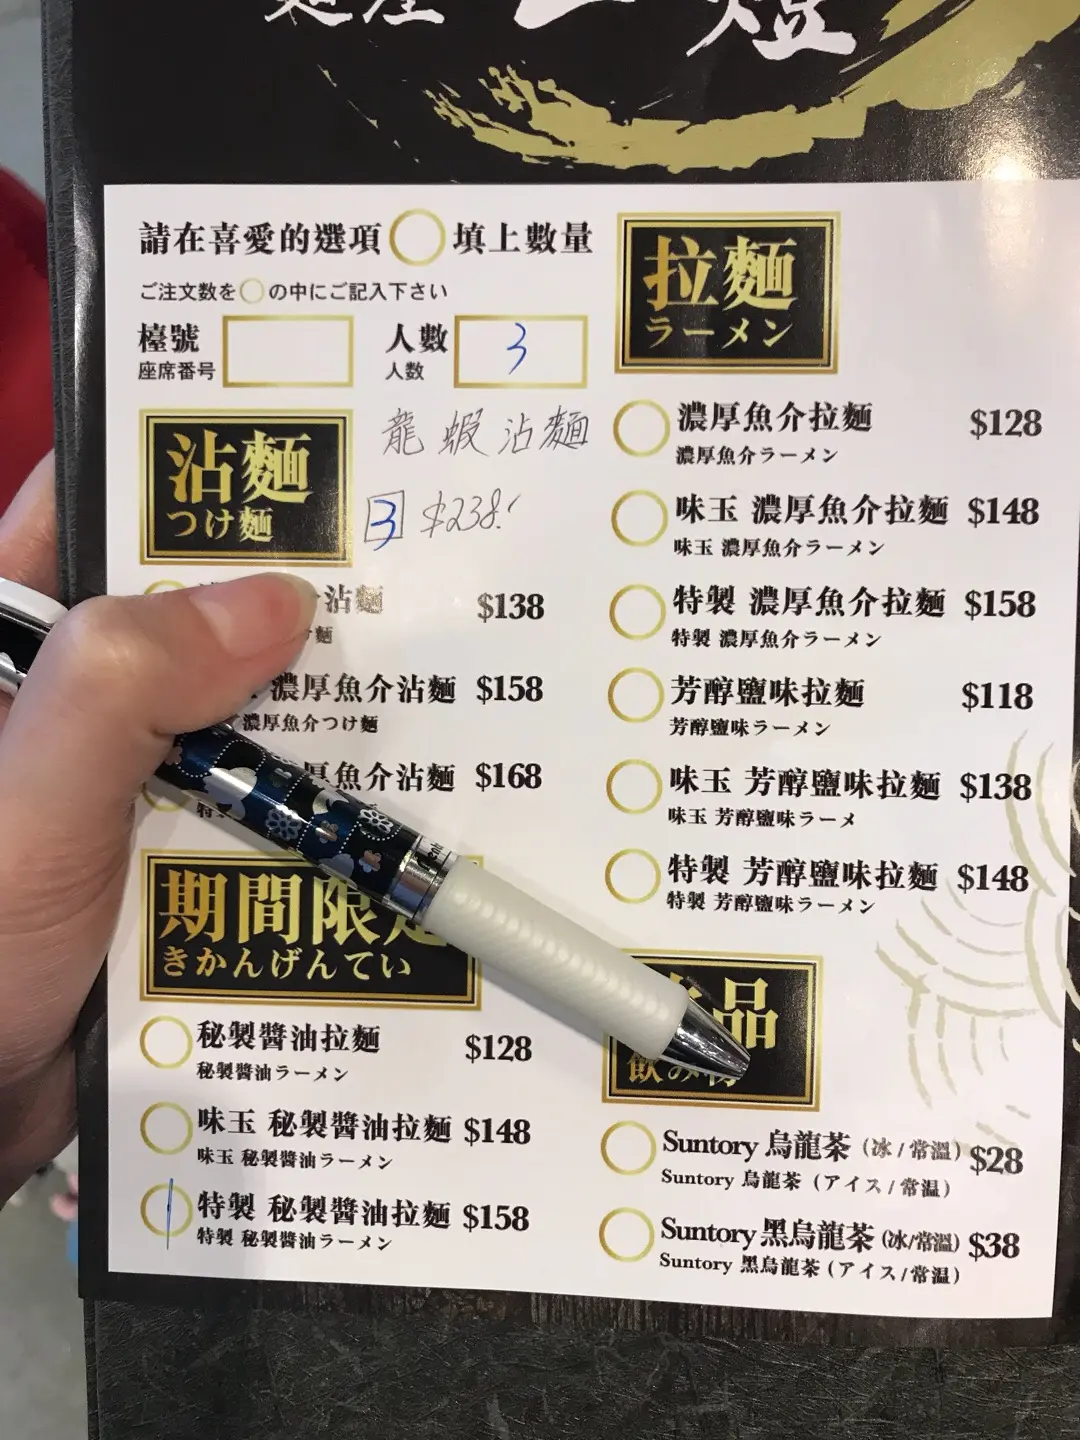 燈
請在喜愛的選項 填上數量
ご注文数を の中にご記入下さい
檯號
座席番号
人數
人数
3
龍蝦沾麵
3 $238.
沾麵
つけ麵
沾麵 $138
麵
濃厚魚介沾麵 $158
濃厚魚介つけ麵
魚介沾麵 $168
特
期間限
きかんげんてい
秘製醬油拉麵 $128
秘製醬油ラーメン
味玉 秘製醬油拉麵 $148
味玉 秘製醬油ラーメン
1 特製 秘製醬油拉麵 $158
特製 秘製醬油ラーメン
拉麵
ラーメン
濃厚魚介拉麵 $128
濃厚魚介ラーメン
味玉 濃厚魚介拉麵 $148
味玉 濃厚魚介ラーメン
特製 濃厚魚介拉麵 $158
特製 濃厚魚介ラーメン
芳醇鹽味拉麵 $118
芳醇鹽味ラーメン
味玉 芳醇鹽味拉麵 $138
味玉 芳醇鹽味ラーメ
特製 芳醇鹽味拉麵 $148
特製 芳醇鹽味ラーメン
品
飲み
Suntory 烏龍茶 (冰/常溫) $28
Suntory 烏龍茶 (アイス/常温)
Suntory 黑烏龍茶 (冰/常溫) $38
Suntory 黑烏龍茶 (アイス/常温)